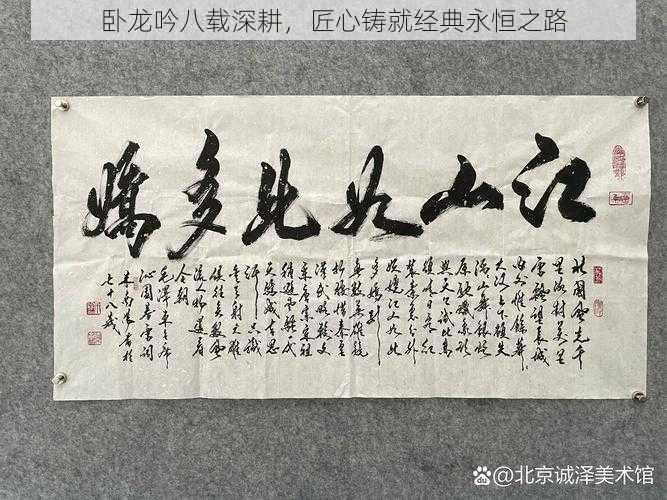 卧龙吟八载深耕，匠心铸就经典永恒之路
江山如此多娇
北国风光千
里冰封万里
雪飘望长城
内外惟余莽莽
大河上下顿失
滔滔山舞银蛇
原驰蜡象欲
与天公试比高
须晴日看红
装素裹分外
妖娆江山如此
多娇引
无数英雄竞
折腰惜秦皇
汉武略输文
采唐宗宋祖
稍逊风骚一代
天骄成吉思
汗只识
弯弓射大雕
俱往矣数风
流人物还看
今朝
毛泽东主席
沁园春雪词
七十八岁
@北京诚泽美术馆